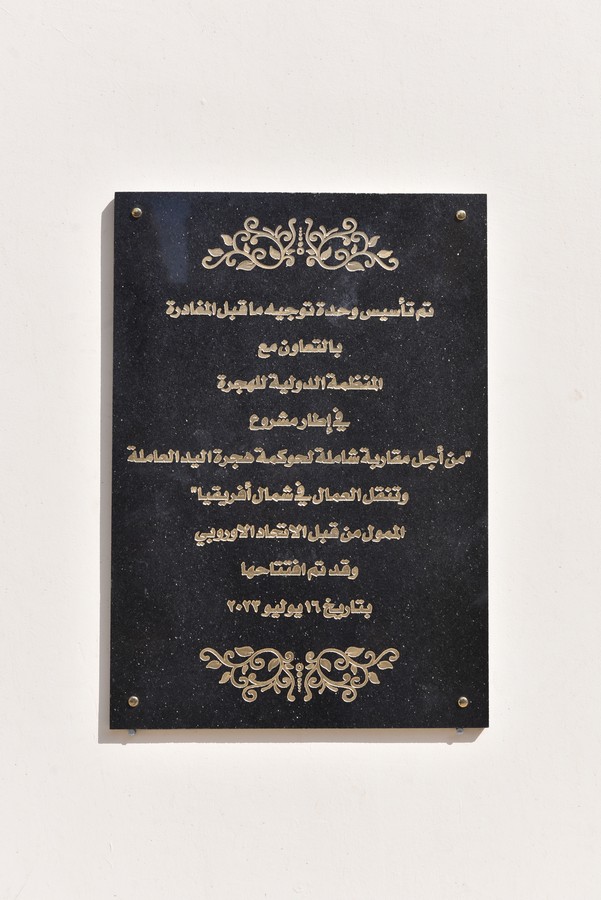 تم تأسيس وحدة توجيه ما قبل المغادرة
بالتعاون مع
المنظمة الدولية للهجرة
في إطار مشروع
"من أجل مقاربة شاملة لحوكمة هجرة اليد العاملة
وتنقل العمال في شمال أفريقيا"
الممول من قبل الاتحاد الاوروبي
وقد تم افتتاحها
بتاريخ ١٦ يوليو ٢٠٢٣